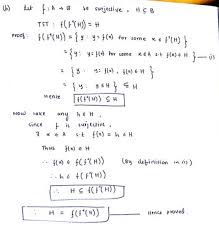 (b) Let f: A → B be surjective, H ⊆ B
TST : f(f⁻¹(H)) = H
Proof: f(f⁻¹(H)) = { y : y = f(x) for some x ∈ f⁻¹(H) }
= { y : y = f(x) for some x ∈ A s.t f(x) ∈ H } — (i)
= { y : y = f(x), f(x) ∈ H }
= { y : y ∈ H } ⊆ H
Hence f(f⁻¹(H)) ⊆ H
Now take any h ∈ H,
Since f is surjective,
∃ x ∈ A s.t f(x) = h ∈ H
Thus f(x) ∈ H
∴ f(x) ∈ f(f⁻¹(H)) (By definition in (i))
∴ h ∈ f(f⁻¹(H))
∴ H ⊆ f(f⁻¹(H))
∴ H = f(f⁻¹(H)) Hence proved.